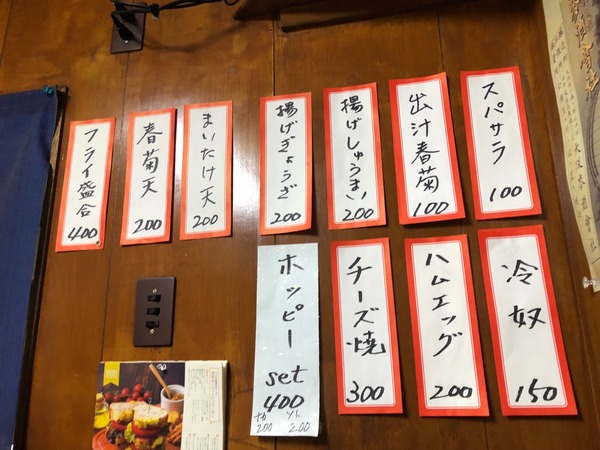 スパサラ
100
出汁春菊
100
揚げしゅうまい
200
揚げぎょうざ
200
まいたけ天
200
春菊天
200
フライ盛合
400
冷奴
150
ハムエッグ
200
チーズ焼
300
ホッピー
set
400
ナカ ソト
200 200